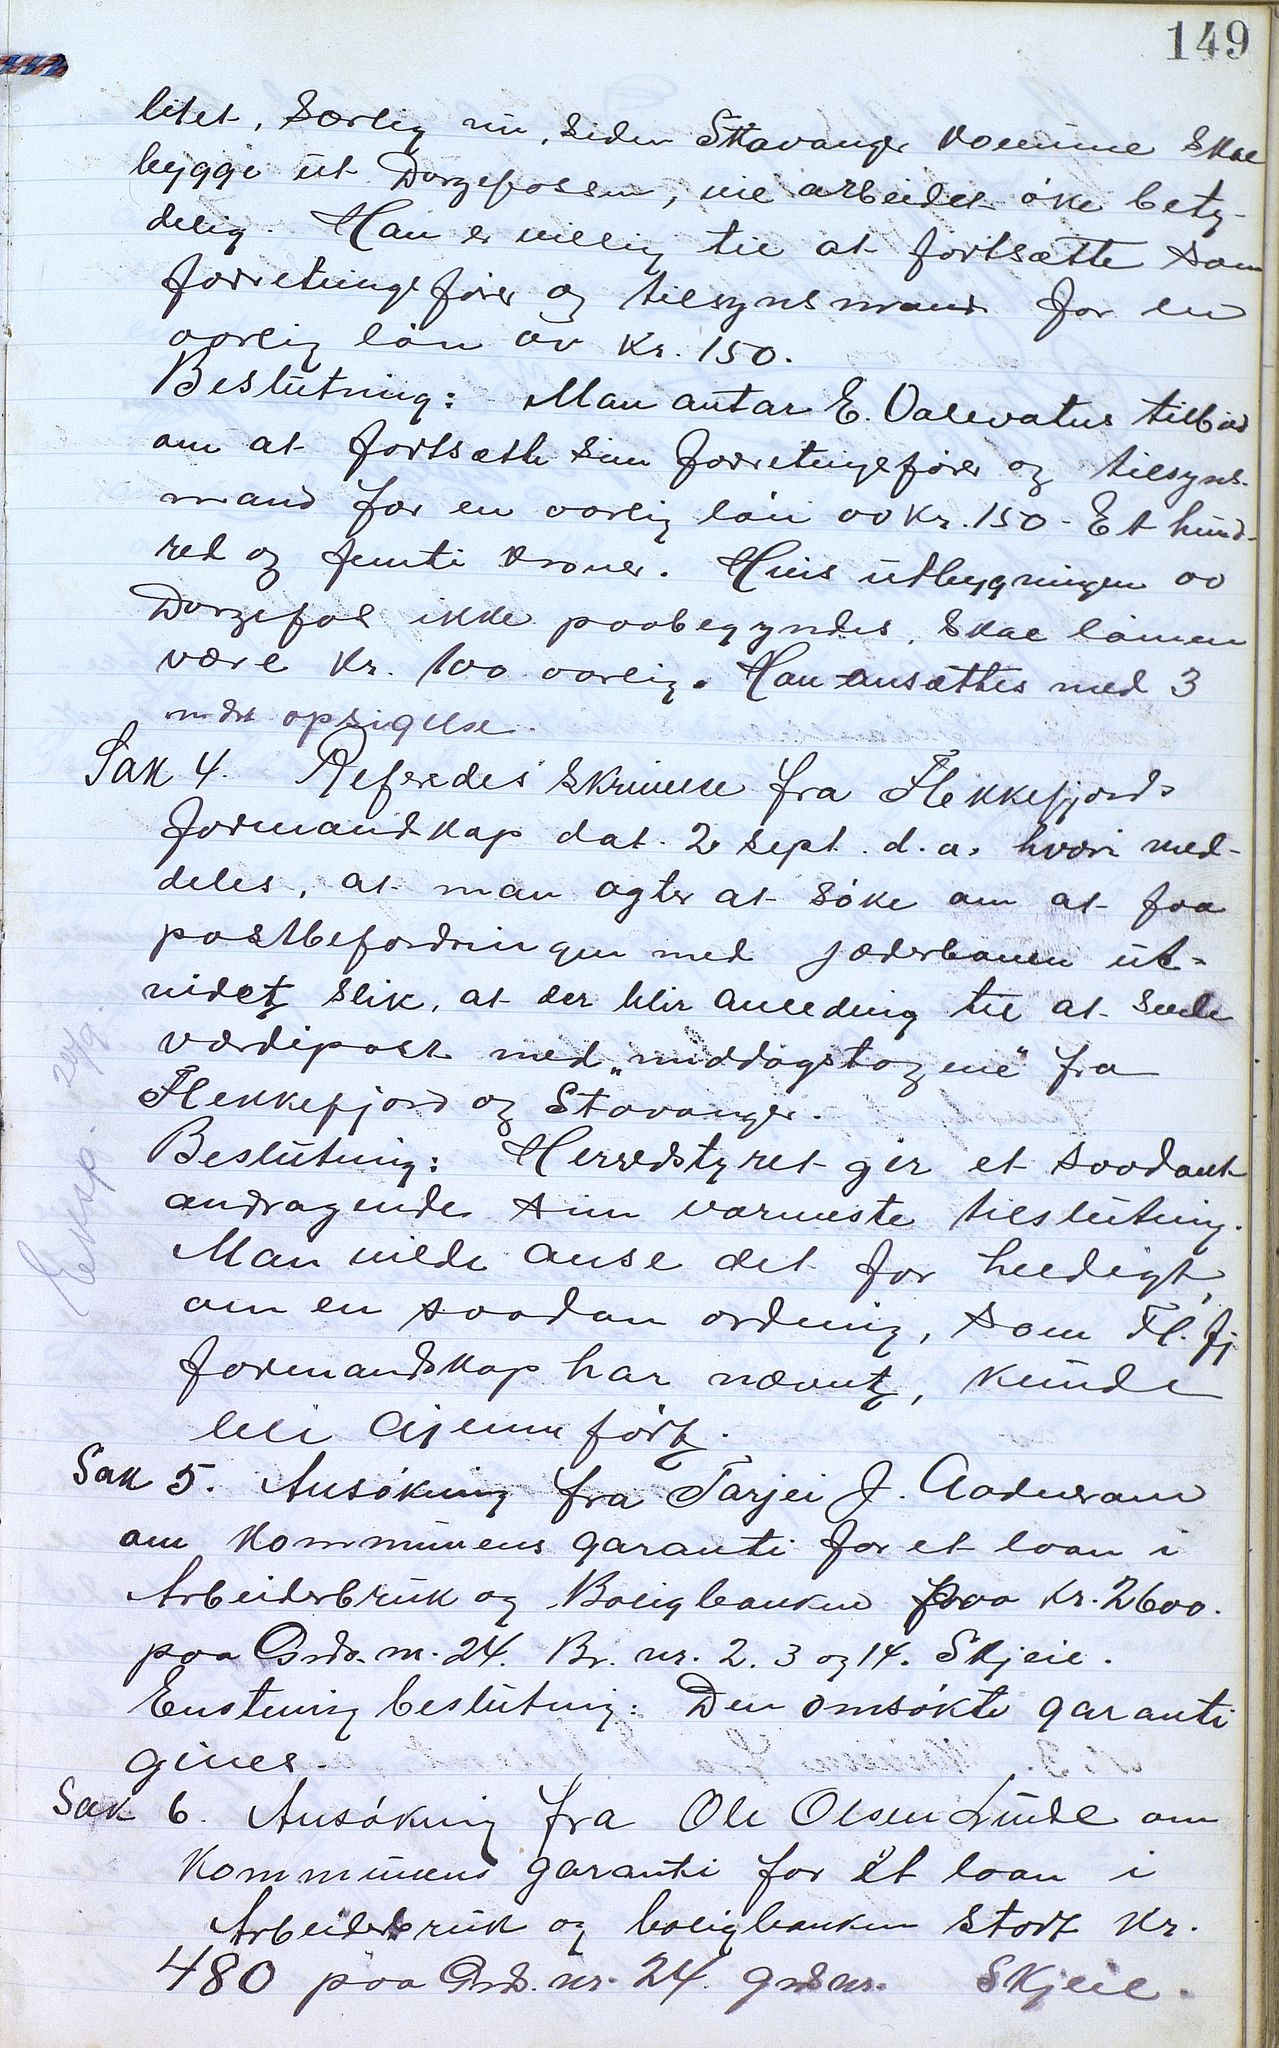 149
litet, særlig nu, siden Stavanger komune skal
bygge ut Dorgefossen, vil arbeidet øke bety-
delig. Han er villig til at fortsætte som
forretningsfører og tilsynsmand for en
aarlig løn av Kr. 150.
Beslutning: Man antar E. Valevatns tilbud
om at fortsætte som forretningsfører og tilsyns-
mand for en aarlig løn av Kr. 150 - Et hund-
red og femti kroner. Hvis utbygningen av
Dorgefos ikke paabegyndes, skal lønnen
være Kr. 100 aarlig. Han ansættes med 3
mdrs opsigelse.
Sak 4. Referedes skrivelse fra Flekkefjords
formandskap dat. 2 sept. d.a. hvori med-
deles, at man agter at søke om at faa
postbefordringen med Jæderbanen ut-
videt slik, at der blir anledning til at sende
værdipost med "middagstogene" fra
Flekkefjord og Stavanger.
Beslutning: Herredstyret gir et saadant
andragende sin varmeste tilslutning.
Man vilde anse det for heldigt,
om en saadan ordning, som Fl. fj
formandskap har nævnt, kunde
bli gjennført.
Eksp. 24/9.
Sak 5. Ansøkning fra Tarjei J. Aadneram
om kommunens garanti for et laan i
Arbeiderbruk og Boligbanken paa Kr. 2600.
paa Grds. nr. 24. Br. nr. 2. 3 og 14. Skjeie.
Enstemig beslutning: Den omsøkte garanti
gives.
Sak 6. Ansøkning fra Ole Olsen Linde om
kommunens garanti for et laan i
Arbeiderbruk og boligbanken stort Kr.
480 paa Grds. nr. 24. grds nr. Skjeie.